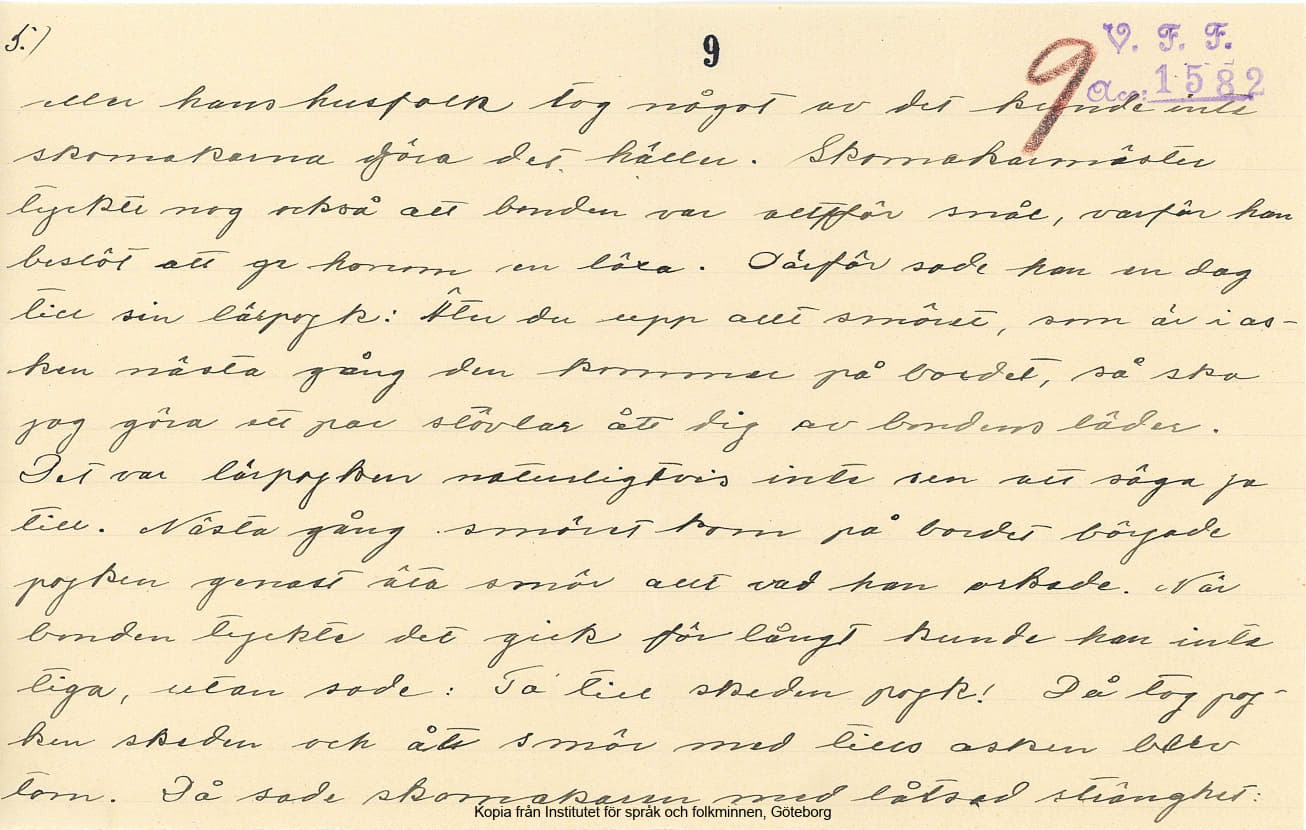 5.)
9
9
V. F. F.
Acc: 1582
eller hans husfolk tog något av det kunde inte
skomakarna göra det häller. Skomakarmäster
tyckte nog också att bonden var alltför snål, varför han
beslöt att ge honom en läxa. Därför sade han en dag
till sin lärpojk: Äter du upp allt smöret, som är i as-
ken nästa gång den kommer på bordet, så ska
jag göra ett par stövlar åt dig av bondens läder.
Det var lärpojken naturligtvis inte sen att säga ja
till. Nästa gång smöret kom på bordet började
pojken genast äta smör allt vad han orkade. När
bonden tyckte det gick för långt kunde han inte
tiga, utan sade: Ta till skeden pojk! Då tog poj-
ken skeden och åt smör med tills asken blev
tom. Då sade skomakaren med låtsad stränghet:
Kopia från Institutet för språk och folkminnen, Göteborg